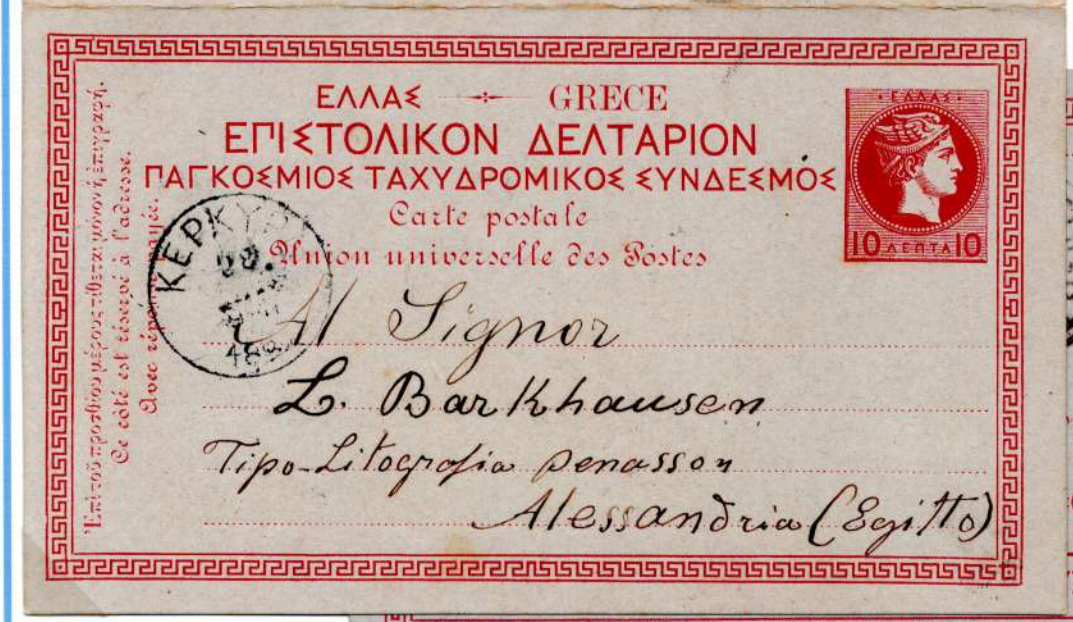 ΕΛΛΑΣ GRECE
ΕΠΙΣΤΟΛΙΚΟΝ ΔΕΛΤΑΡΙΟΝ
ΠΑΓΚΟΣΜΙΟΣ ΤΑΧΥΔΡΟΜΙΚΟΣ ΣΥΝΔΕΣΜΟΣ
Carte postale
Union universelle des Postes
· ΕΛΛΑΣ ·
10 ΛΕΠΤΑ 10
Ἐπὶ τοῦ προσθίου μέρους τίθεται μόνον ἡ ἐπιγραφή.
Ce côté est réservé à l'adresse.
Avec réponse payée.
ΚΕΡΚΥΡ
188
Al Signor
L. Barkhausen
Tipo-Litografia Penasson
Alessandria (Egitto)